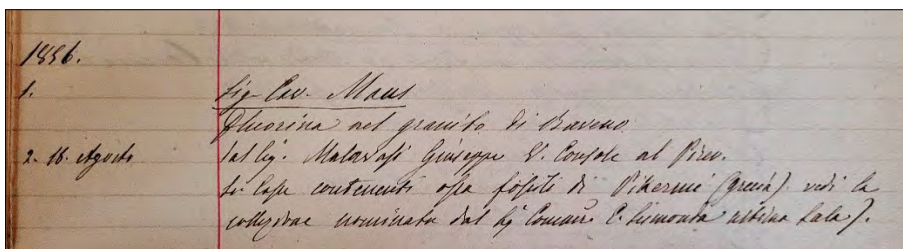 1856.
1. Sig. Cav. Maus
Fluorina nel granito di Baveno
2. 16. Agosto Dal Sig. Malavasi Giuseppe V. Console al Pireo.
casse contenenti ossa fossili di Pikermi (Grecia) vedi la
collezione nominata dal Sig. Comm. E. Sismonda ultima Sala).